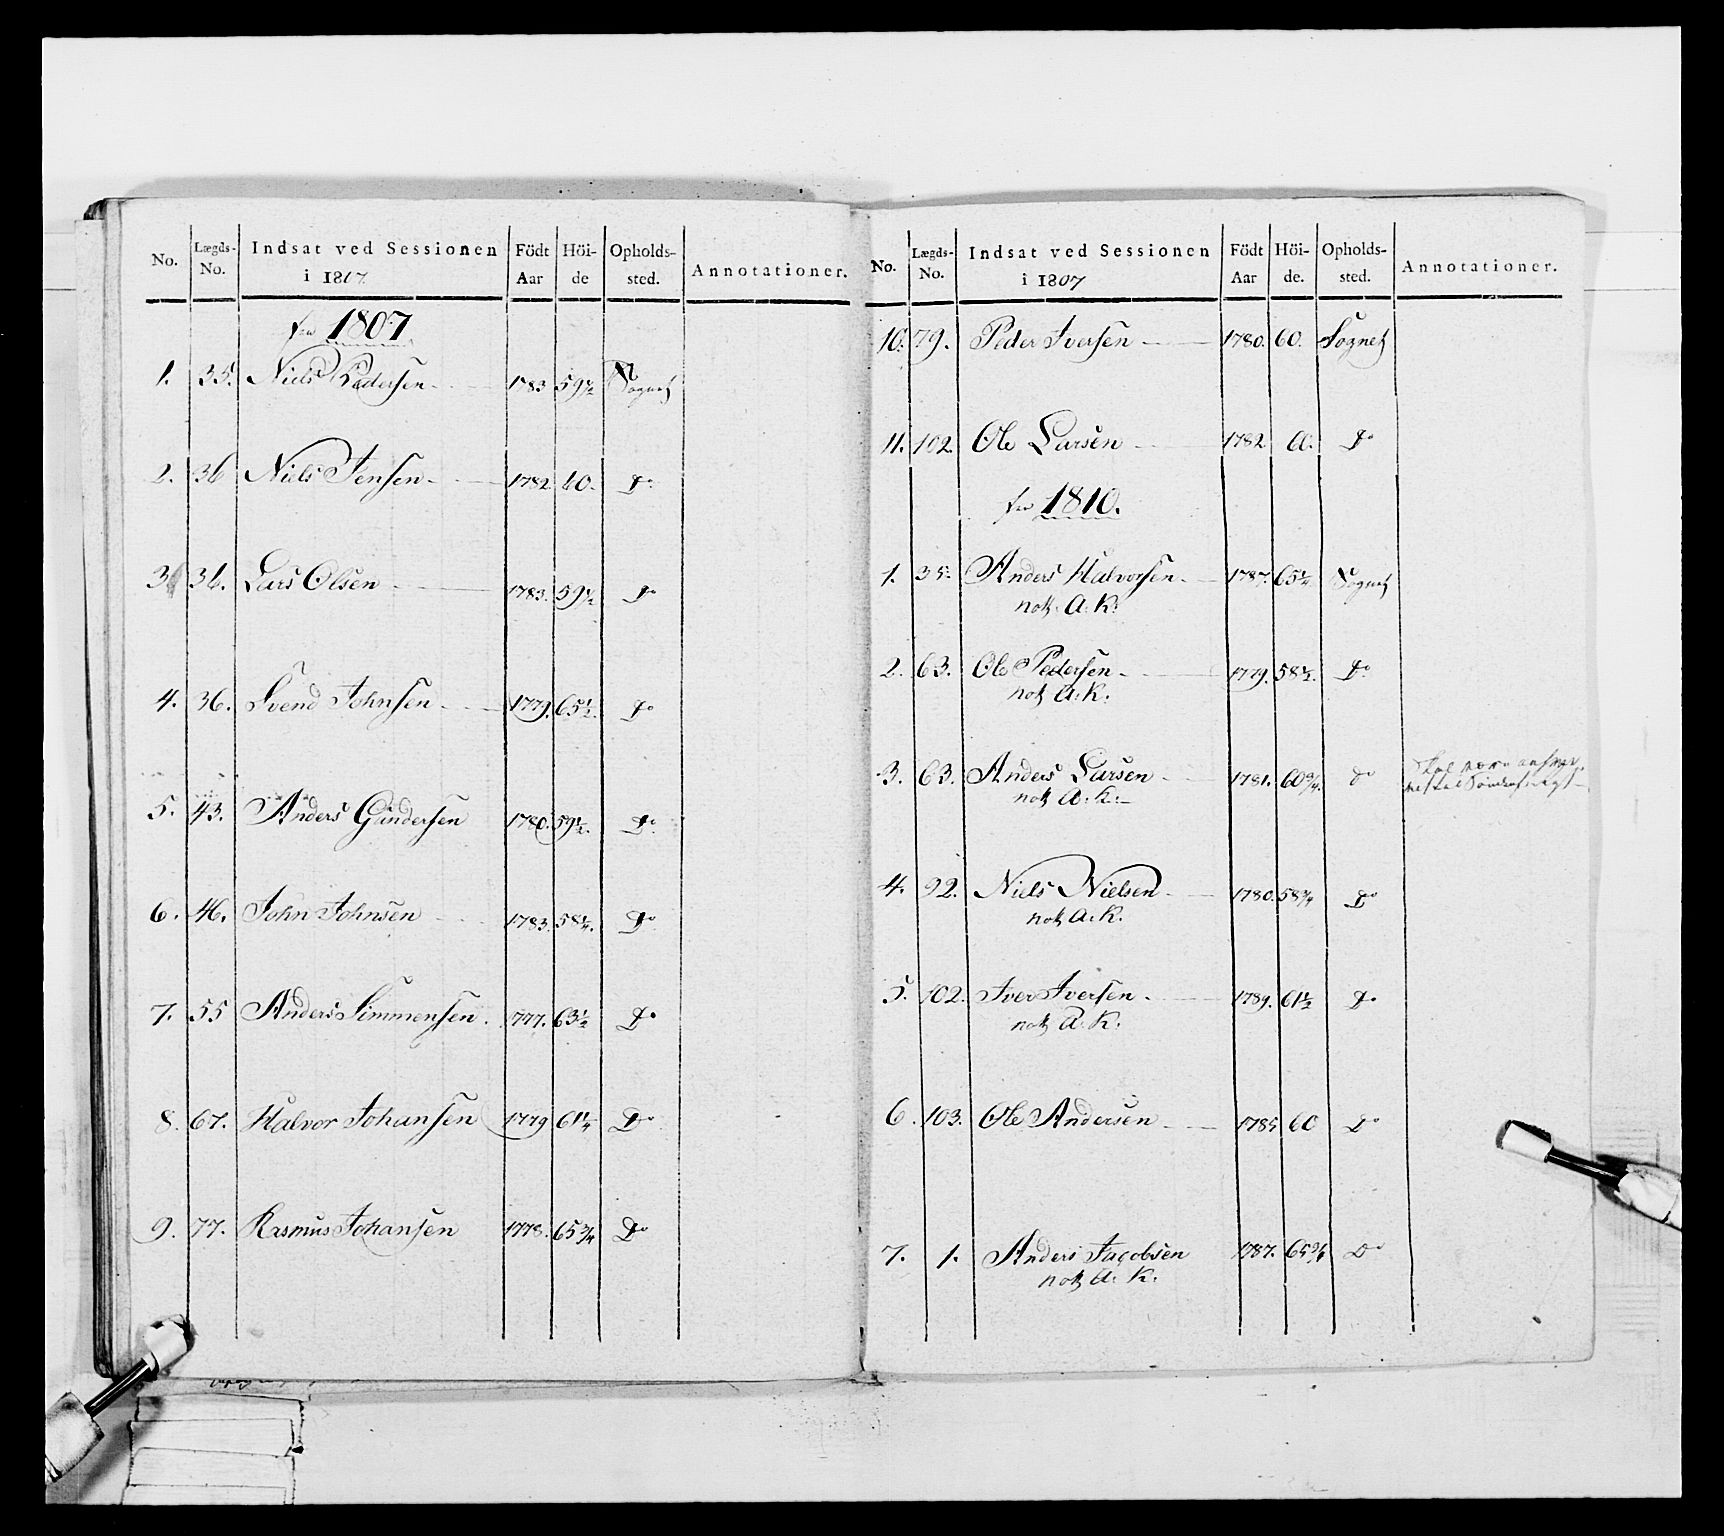 No. Lægds-No. Indsat ved Sessionen i 1807. Födt Aar Höi-de Opholds-sted. Annotationer.
fra 1807
1. 35. Niels Pedersen 1783 59½ Sognet
2. 36 Niels Jensen 1782 60. Do
3 36. Lars Olsen 1783. 59½ Do
4. 36. Svend Johnsen 1779. 65½. Do
5. 43. Anders Gundersen 1780. 59½. Do
6. 46. John Johnsen 1783. 58¼. Do
7. 55 Anders Simmensen 1777. 63½ Do
8. 67. Halvor Johansen 1779 61¼ Do
9. 77. Rasmus Johansen 1778. 65¾ Do
No. Lægds-No. Indsat ved Sessionen i 1807 Födt Aar Höi-de. Opholds-sted. Annotationer.
10. 79. Peder Iversen 1780. 60. Sognet
11. 102. Ole Larsen 1782 60. Do
fra 1810.
1. 35. Anders Halvorsen 1787. 65½ Sognet
not. A. K.
2. 63. Ole Pedersen 1779. 58½. Do
not A. K.
3. 63. Anders Larsen 1781. 60¾. do
not A. K.
4. 92. Niels Nielsen 1780. 58¾ Do
not A. K.
5. 102. Iver Iversen 1789. 61½ Do
not A. K.
6. 103. Ole Andersen 1785 60 Do
7. 1. Anders Jacobsen 1787. 65¾ Do
not A. K.